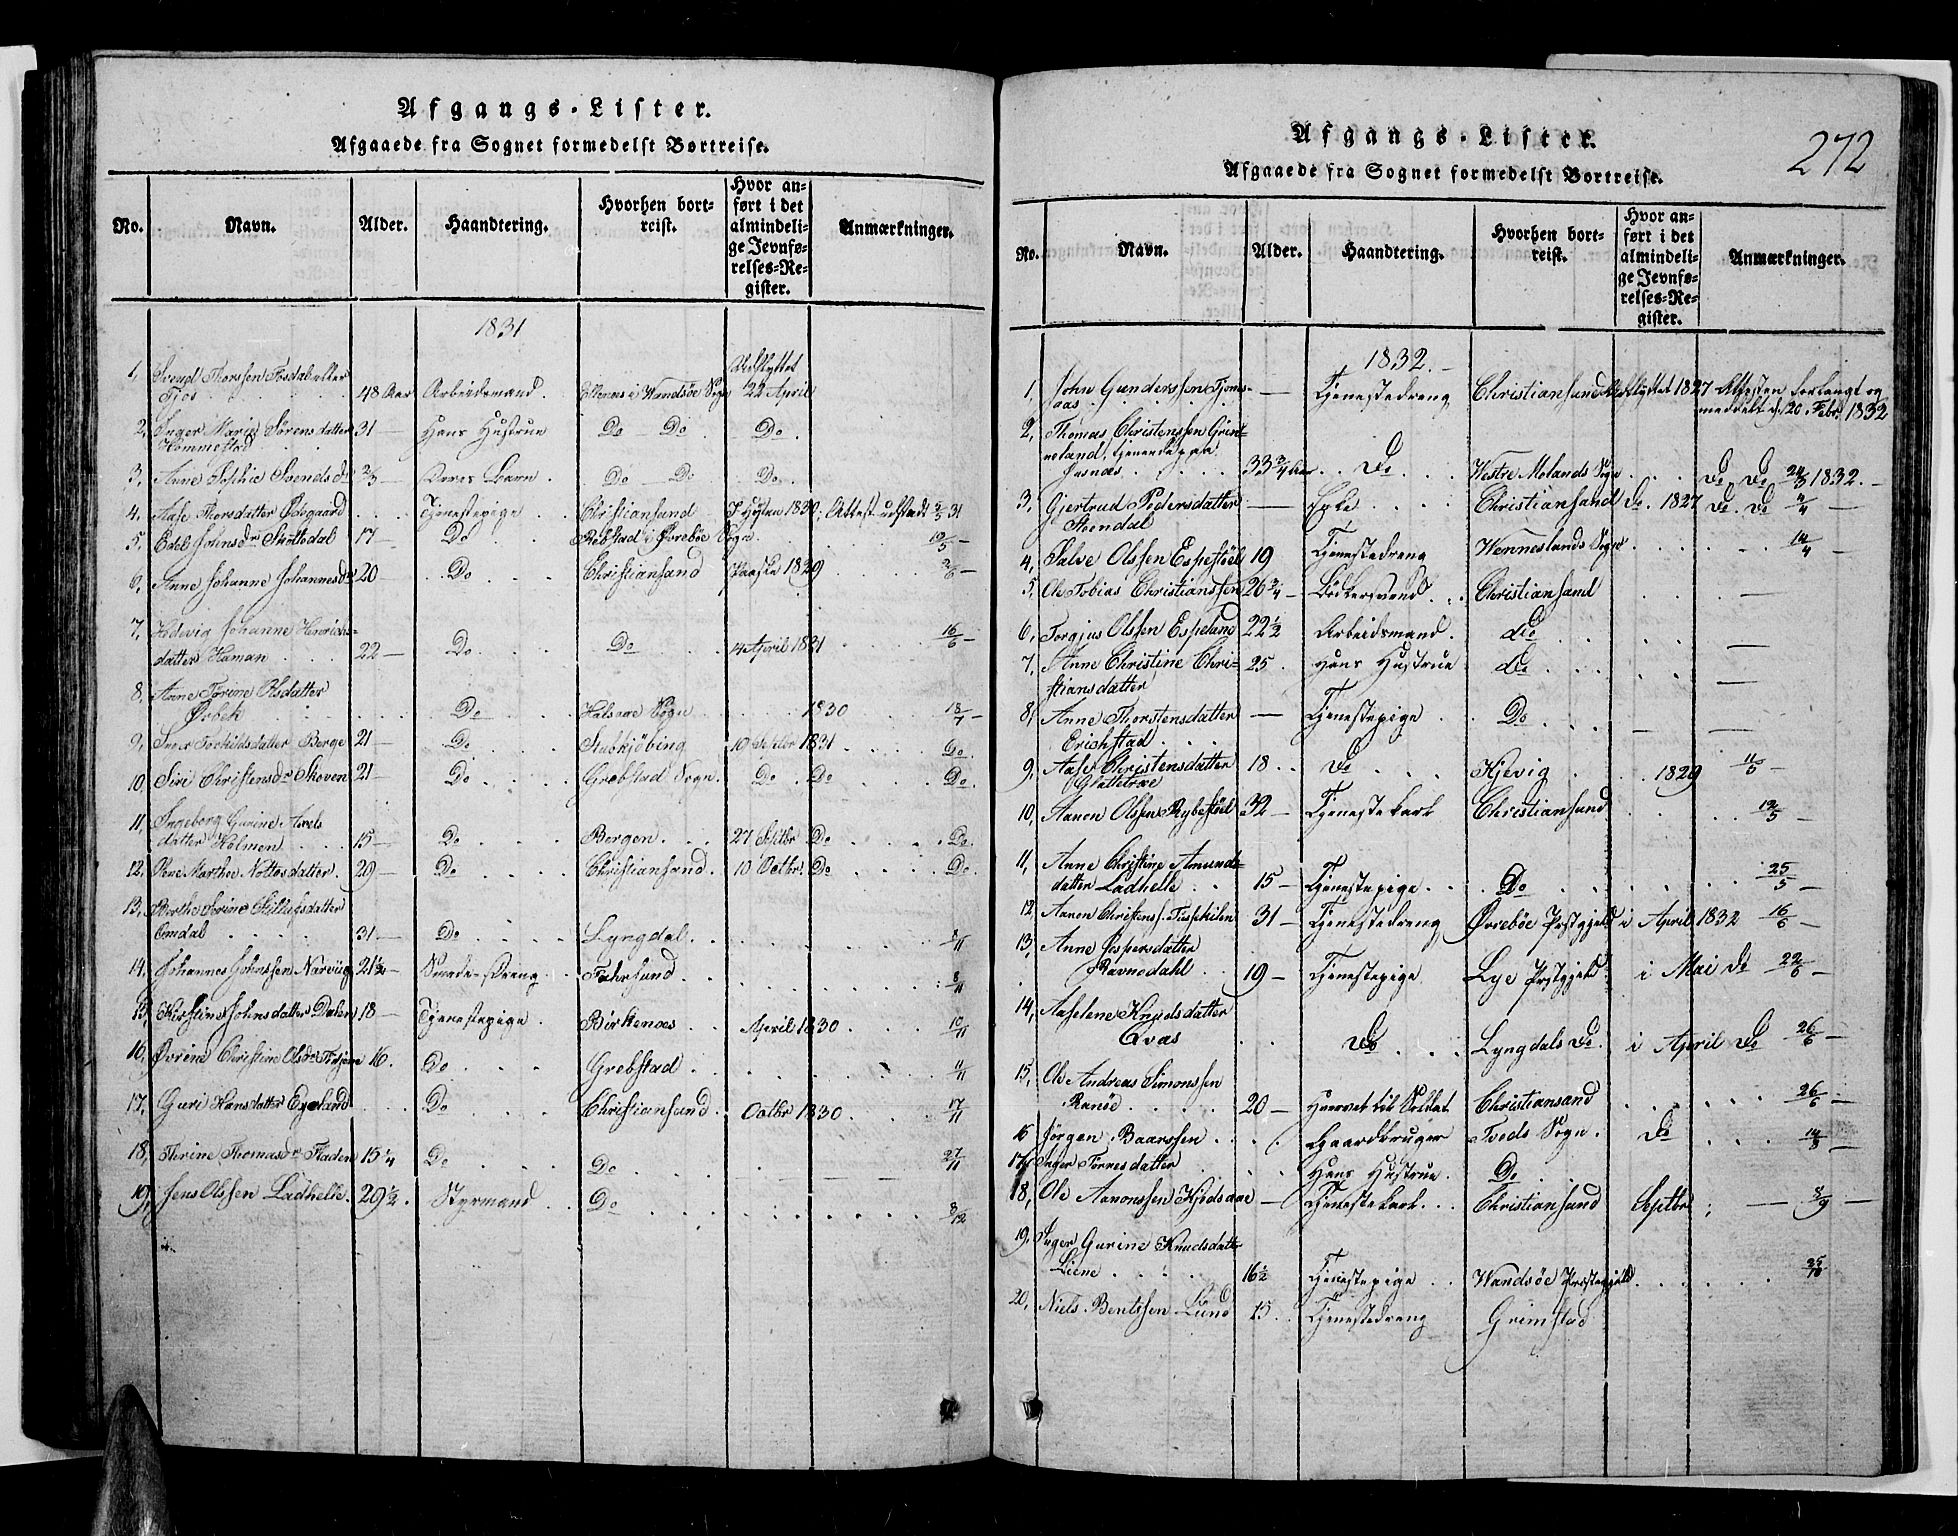 Afgangs-Lister.
Afgaaede fra Sognet formedelst Bortreise.
No. Navn. Alder. Haandtering. Hvorhen bortreist. Hvor anført i det almindelige Jevnførelses-Register. Anmærkninger.
1831
1, Svend Thorssen eller Udflyttet
Tjos 48 Aar Arbeidsmand. i Wandsöe Sogn 22 April
2, Inger Marie Sörensdatter 31 — Hans Hustrue Do Do Do.
Hommestad
3, Anne Sophie Svendsdr 2/3 — Deres Barn. Do — Do Do.
4. Aase Thorsdatter Ödegaard Tjenestepige. Christiansand 1830, Attest udstædt 31
5, Edel Johnsdr Skottedal 17 — Do i Övreböe Sogn. 19/5
6, Anne Johanne Johannesdr 20 — Do Christiansand Paaske 1829 2/6 —
7, Hedevig Johanne Henrichs-
datter Haman 22 — Do Do 14 April 1831 16/6 —
8, Anne Torine Olsdatter
Do Halsaae Sogn 1830 18/7 —
9, Inger Torkildsdatter Berge 21 — Do Stubkjöbing 10 Septbr 1831 Do.
10, Siri Christensdr Skoven 21 — Do Grebstad Sogn. Do. Do Do.
11, Ingeborg Gurine Axels
datter Holmen 15 — Do Bergen 27 Septbr Do Do.
12, Marthe Nottosdatter. 29 — Do Christiansand. 10 Octbr. Do Do.
13, Berthe Serine
Omdal 31 — Do Lyngdal. 8/11
14, Johannes Johnssen Narvüg 21½ — Smede-Dreng. Fahrsund 8/11
15, Kirstine Johnsdatter Dalen 18 — Tjenestepige. Birkenæs April 1830 10/11
16, Christine Olsdr 16. Do Grebstad 11/11
17, Guri Hansdatter Egeland Do Christiansand. Octbr 1830. 17/11
18, Thrine Thomasdr Fladen 15¼ Do Do 27/11
19, Jens Olssen Ladhelle. 29½. Styrmand Do 8/12
Afgangs-Lister.
272
Afgaaede fra Sognet formedelst Bortreise.
No. Navn. Alder. Haandtering. Hvorhen bortreist. Hvor anført i det almindelige Jevnførelses-Register. Anmærkninger.
1832. —
1, John Gunderssen Tjomsaas — Tjenestedreng Christiansand Udflyttet 1827 Attesten forlangt og
meddelt d. 20 Febr. 1832
2, Thomas Christenssen Grim-
meland, tjenende paa
33¾ Aar Do Westre Molands Sogn Do Do 24/3 1832. —
3, Gjertrud Pedersdatter — Christiansand Do. 1827 Do. Do 4/4 —
Stemdal
4, Salve Olssen Espestöl 19 Tjenestedreng Wenneslands Sogn 14/4 —
5, Ole Tobias Christianssen 26¾ — Bödkersvend Christiansand —
6, Torgjus Olssen Espeland 22½ Arbeidsmand. do
7, Anne Christine Chri- 25. Hans Hustrue do —
stiansdatter
8, Anne Thorstensdatter — Tjenestepige Do —
Erichstad
9, Aase Christensdatter 18 Do Kjevig 1829 11/5 —
Glattetræ
10, Aanon Olssen Rybestöl 32 — Tjenestekarl Christiansand 19/5 —
11, Anne Christine Amunds-
datter Ladhelle 15 — Tjenestepige Do 25/5 —
12, Aanon Christens. 31 — Tjenestedreng Övreböe Præstgjeld i April 1832 16/6 —
13, Anne Jespersdatter
Ravnedahl 19 — Tjenestepige Lye Præstgjeld i Mai do 22/6 —
14, Aaselene Knudsdatter
Qvas Do Lyngdals Do. i April Do 26/6 —
15, Ole Andreas Simonssen
Ranöe 20 — Hvervet til Soldat Christiansand 26/6 —
16 Jörgen Baarssen Gaardbruger Tveds Sogn. Do 14/8 —
17, Inger Torresdatter Hans Hustrue. Do
18, Ole Aanonssen Kjodsaae — Tjenestekarl Christiansand Septbr 8/9 —
19, Inger Gurine Knudsdatter
Liene 16½ Tjenestepige Wandsöe Præstegjeld 25/10
20, Niels Bentssen Lund 15 Tjenestedreng Grimstad